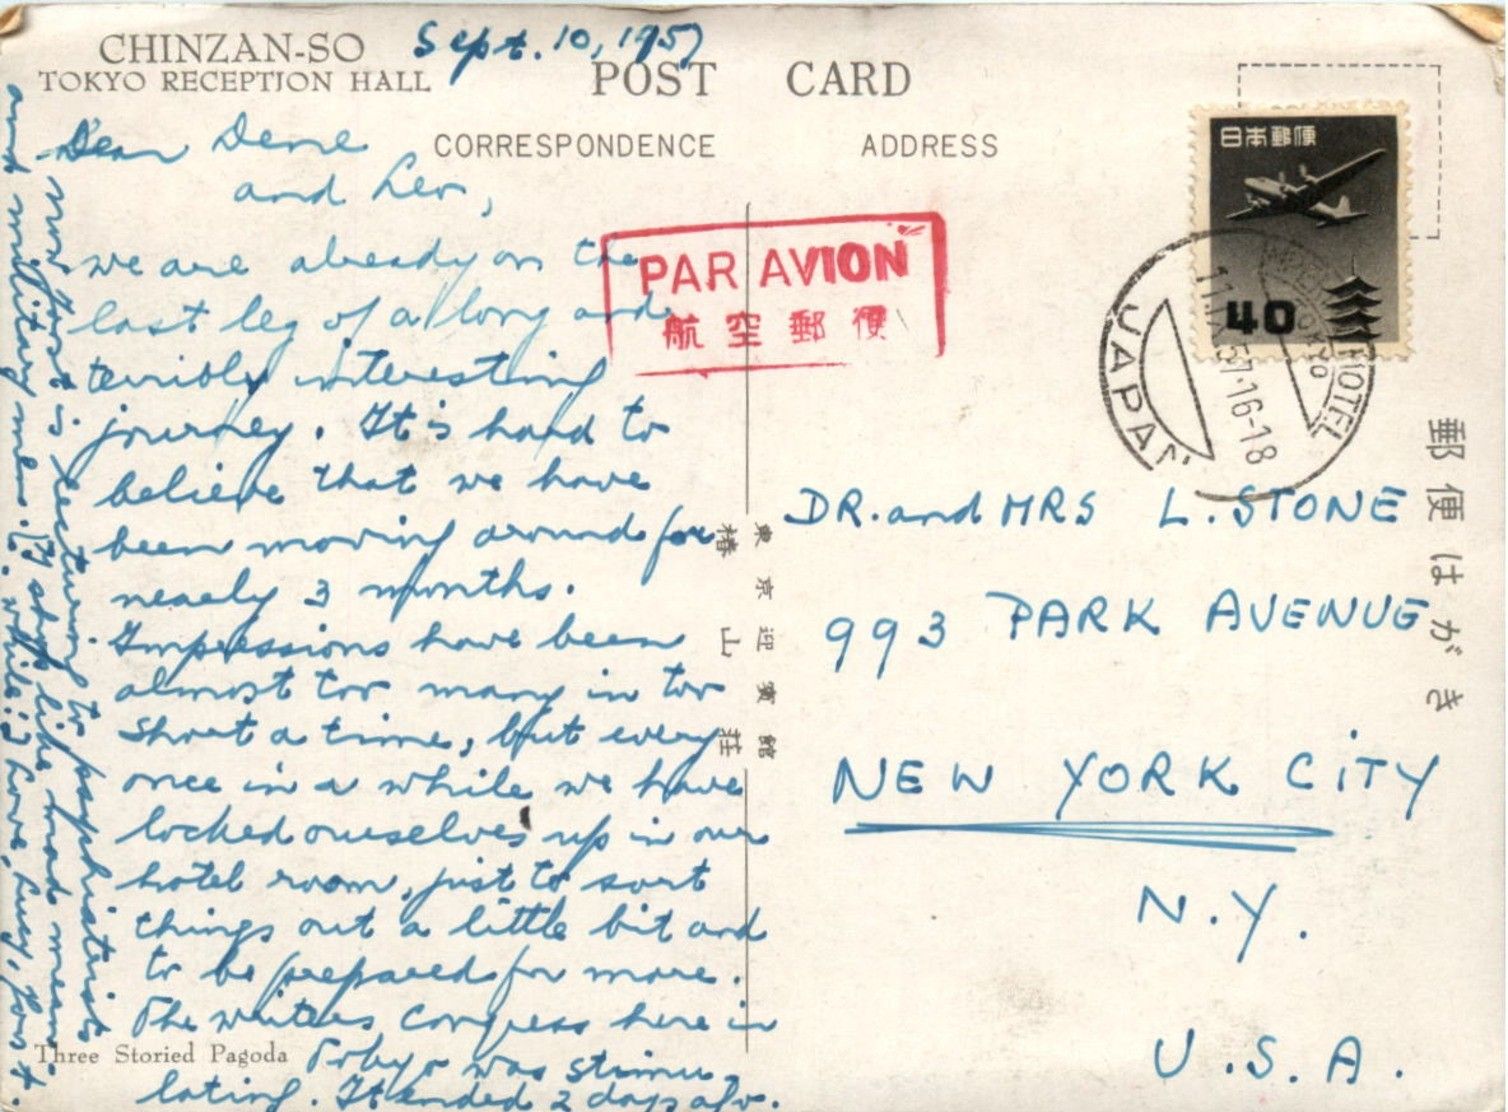 CHINZAN-SO
TOKYO RECEPTION HALL
Sept. 10, 1957
POST CARD
CORRESPONDENCE
ADDRESS
Dear Dene
and Leo,
we are already on the
last leg of a long and
terribly interesting
journey. It's hard to
believe that we have
been moving around for
nearly 3 months.
Impressions have been
almost too many in too
short a time, but every
once in a while we have
locked ourselves up in our
hotel room, just to sort
things out a little bit and
to be prepared for more.
The writers congress here in
Tokyo was stimu-
lating. It ended 2 days ago.
now Joost is lecturing to psychiatrists
and military men.
It stops like mad mean-
while! Love, Lucy, Joost.
Three Storied Pagoda
東京迎賓館
椿山荘
PAR AVION
航空郵便
日本郵便
40
JAPAN
TOKYO
HOTEL
57.16-18
郵便はがき
DR. and MRS L. STONE
993 PARK AVENUE
NEW YORK CITY
N.Y.
U.S.A.